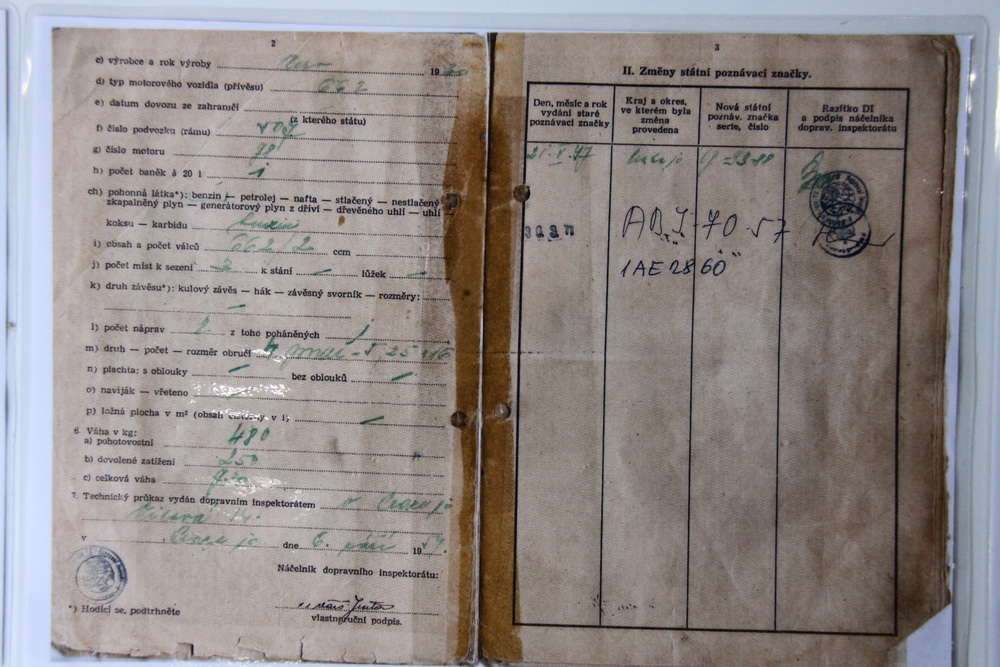 2
c) výrobce a rok výroby 19
d) typ motorového vozidla (přívěsu) 662
e) datum dovozu ze zahraničí
(z kterého státu)
f) číslo podvozku (rámu)
g) číslo motoru 98
h) počet baněk à 20 l
ch) pohonná látka*): benzin — petrolej — nafta — stlačený — nestlačený
zkapalněný plyn — generátorový plyn z dříví — dřevěného uhlí — uhlí —
koksu — karbidu
i) obsah a počet válců 662/2 ccm
j) počet míst k sezení 3 k stání — lůžek —
k) druh závěsu*): kulový závěs — hák — závěsný svorník — rozměry:
—
l) počet náprav 2 z toho poháněných 1
m) druh — počet — rozměr obručí 5,25-16
n) plachta: s oblouky — bez oblouků —
o) naviják — vřeteno —
p) ložná plocha v m² (obsah cisterny v l) —
6. Váha v kg:
a) pohotovostní 480
b) dovolené zatížení 250
c) celková váha 730
7. Technický průkaz vydán dopravním inspektorátem
v dne 6. září 19
Náčelník dopravního inspektorátu:
*) Hodící se, podtrhněte
vlastnoruční podpis.
3
II. Změny státní poznávací značky.
Den, měsíc a rok
vydání staré
poznávací značky
Kraj a okres,
ve kterém byla
změna
provedena
Nová státní
poznáv. značka
serie, číslo
Razítko DI
a podpis náčelníka
doprav. inspektorátu
ABI-70-57
1AE 2860